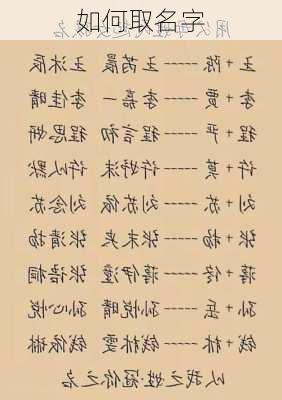 如何取名字
王+陈-----王芮晨 王沐辰
李+贾-----李嘉一 李佳晴
程+严-----程言初 程思妍
许+莫-----许妤沫 许以默
刘+苏-----刘苏依 刘念苏
张+杨-----张未央 张清扬
蒋+佟-----蒋伊潼 蒋语桐
孙+岳-----孙悦晴 孙心悦
钱+林-----钱林雯 钱依琳
以我之姓.冠你之名